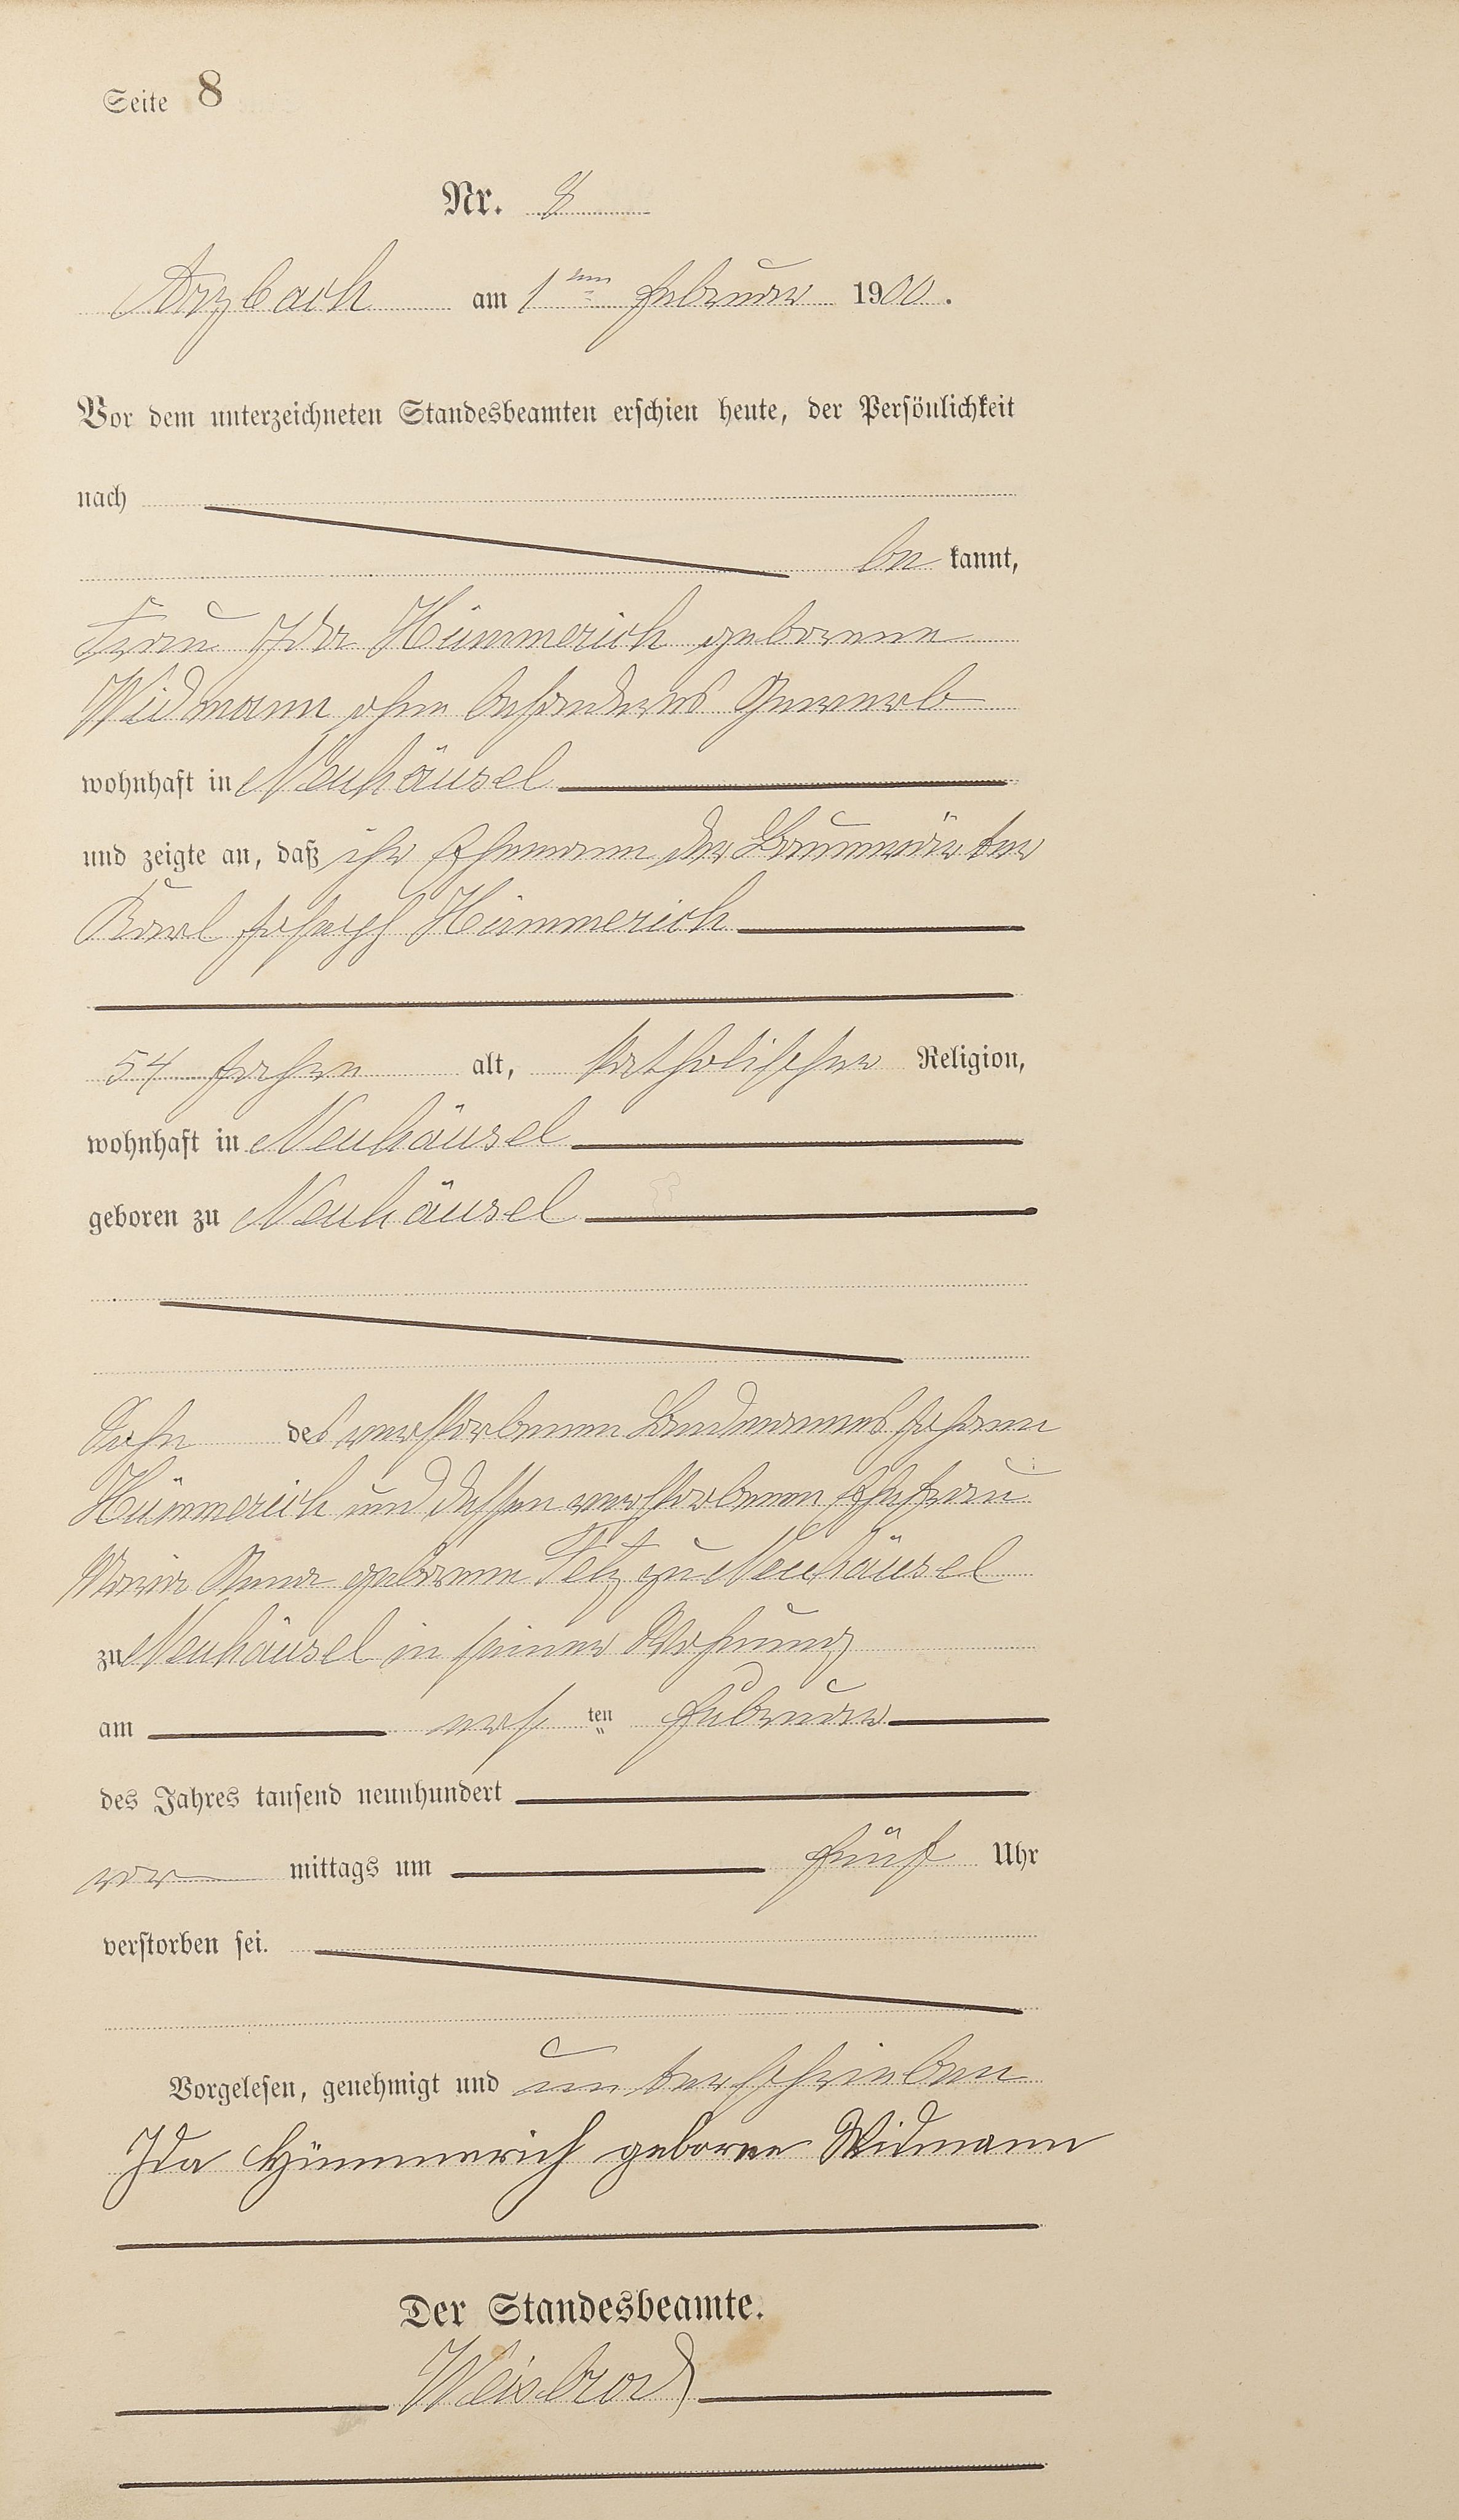 Seite 8
Nr. 8
Arzbach am 1ten Februar 1900.
Vor dem unterzeichneten Standesbeamten erschien heute, der Persönlichkeit
nach
be kannt,
Frau Ida Hümmerich geborene
Widmann ohne besonderes Gewerb
wohnhaft in Neuhäusel
und zeigte an, daß ihr Ehemann der Baumwärter
Karl Joseph Hümmerich
54 Jahre alt, katholischer Religion,
wohnhaft in Neuhäusel
geboren zu Neuhäusel
Sohn des verstorbenen Landmannes Johann
Hümmerich und dessen verstorbenen Ehefrau
Maria Anna geborene zu Neuhäusel
zu Neuhäusel in seiner Wohnung
am ersten Februar
des Jahres tausend neunhundert
vor mittags um fünf Uhr
verstorben sei.
Vorgelesen, genehmigt und unterschrieben
Ida Hümmerich geborne Widmann
Der Standesbeamte.
Weisbrod